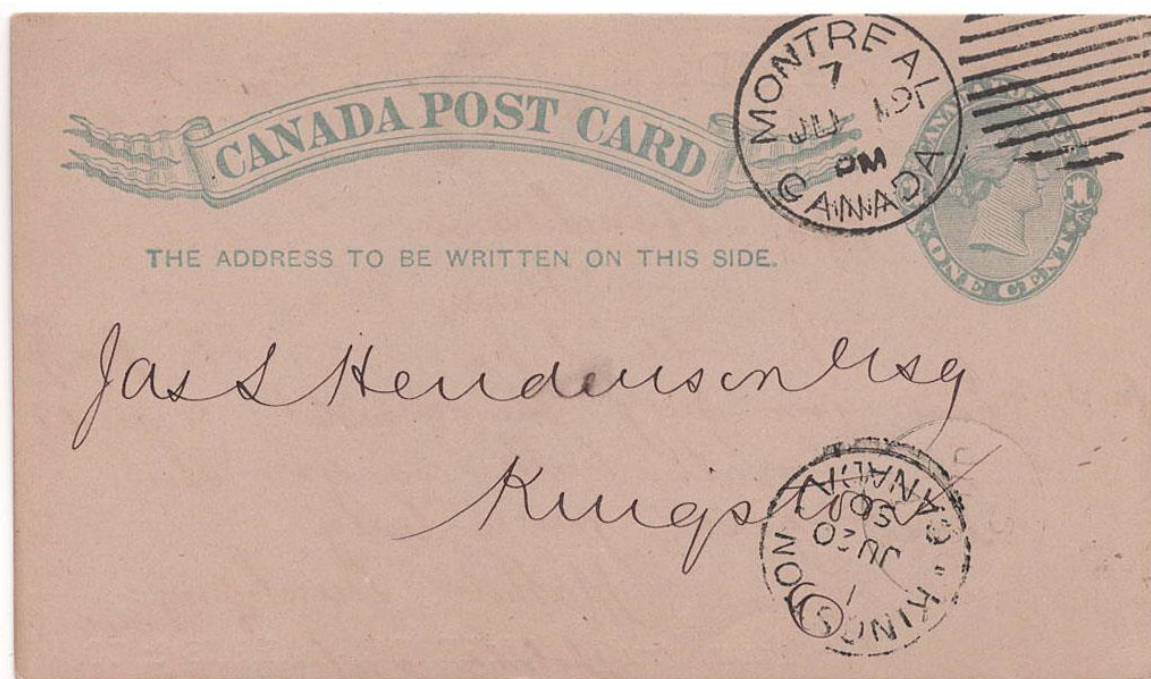 CANADA POST CARD
MONTREAL
7
JU 19
PM
CANADA
ONE CENT
THE ADDRESS TO BE WRITTEN ON THIS SIDE.
Jas S Henderson Esq
Kingston
KINGSTON
1
JU 20
CANADA